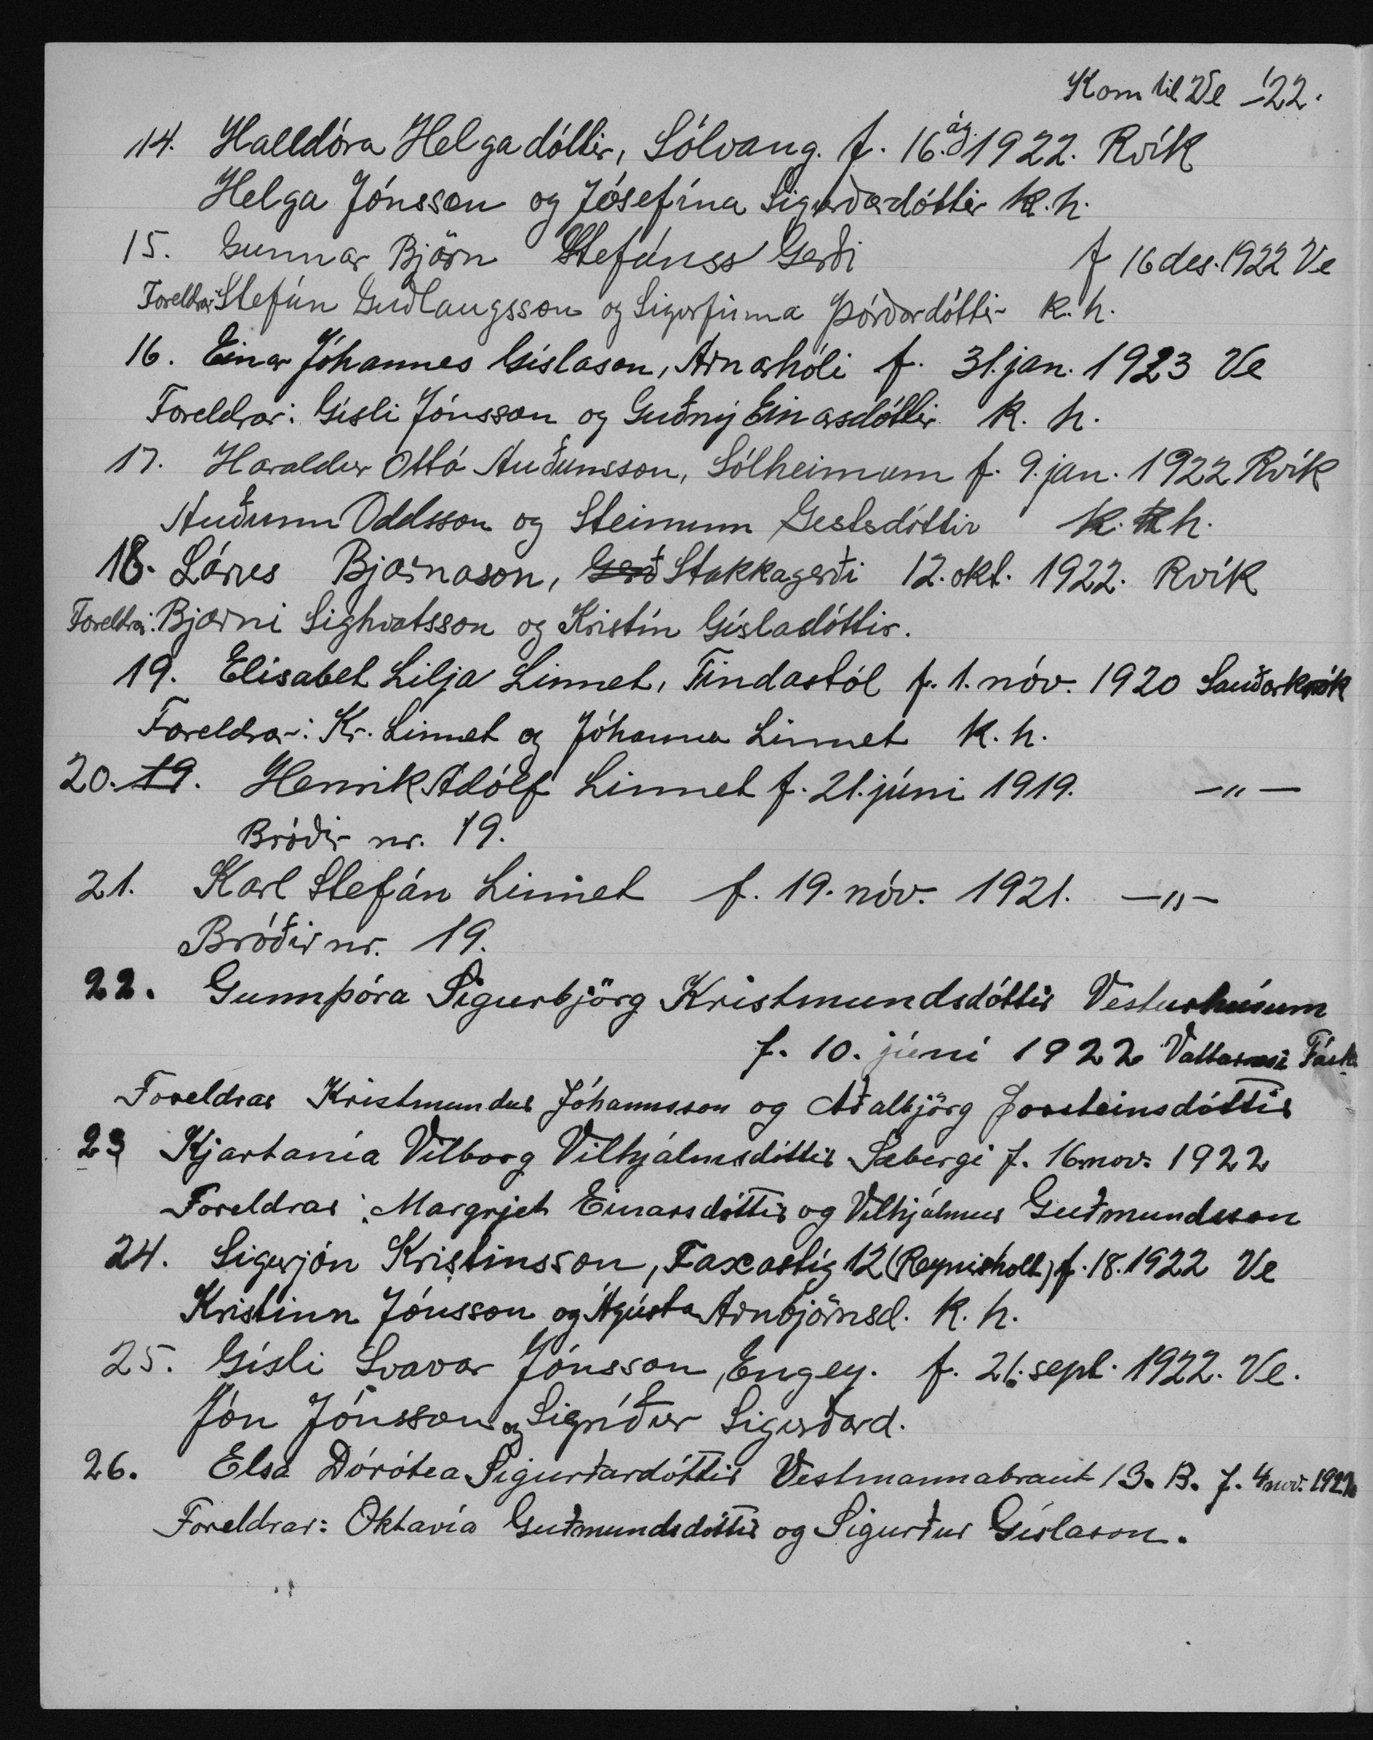 Kom til Ve -'22.
14. Halldóra Helgadóttir, Sólvang. f. 16. ág. 1922. Rvík
Helga Jónsson og Jósefína Sigurðardóttir k.h.
15. Gunnar Björn Stefánss Gerði f 16 des. 1922 Ve
Foreldrar: Stefán Guðlaugsson og Sigurfinna Þórðardóttir k.h.
16. Einar Jóhannes Gíslason, Arnarhóli f. 31. jan. 1923 Ve
Foreldrar: Gísli Jónsson og Guðný Einarsdóttir k. h.
17. Haraldur Ottó Auðunsson, Sólheimum f. 9. jan. 1922 Rvík
Auðunn Oddsson og Steinunn Gestsdóttir k. h.
18. Lárus Bjarnason, Gerð Stakkagerði 12. okt. 1922. Rvík
Foreldrar: Bjarni Sighvatsson og Kristín Gísladóttir.
19. Elísabet Lilja Linnet, Tindastól f. 1. nóv. 1920 Sauðarkrók
Foreldrar: Kr. Linnet og Jóhanna Linnet k. h.
20. 19. Henrik Adólf Linnet f. 21. júni 1919. —"—
Bróðir nr. 19.
21. Karl Stefán Linnet f. 19. nóv. 1921. —"—
Bróðir nr. 19.
22. Gunnþóra Sigurbjörg Kristmundsdóttir Vesturhúsum
f. 10. júní 1922
Foreldrar Kristmundur Jóhannsson og Aðalbjörg Þorsteinsdóttir
23 Kjartanía Vilborg Vilhjálmsdóttir Sæbergi f. 16 nov. 1922
Foreldrar: Margrjet Einarsdóttir og Vilhjálmur Guðmundsson
24. Sigurjón Kristinsson, Faxastíg 12 (Reynisholt) f. 18. 1922 Ve
Kristinn Jónsson og Ágústa Arnbjörnsd. k. h.
25. Gísli Svavar Jónsson, Engey. f. 21. sept. 1922. Ve.
Jón Jónsson og Sigríður Sigurðard.
26. Elsa Dórótea Sigurðardóttir Vestmannabraut 13. B. f. 4 nov. 1922
Foreldrar: Oktavía Guðmundsdóttir og Sigurður Gíslason.